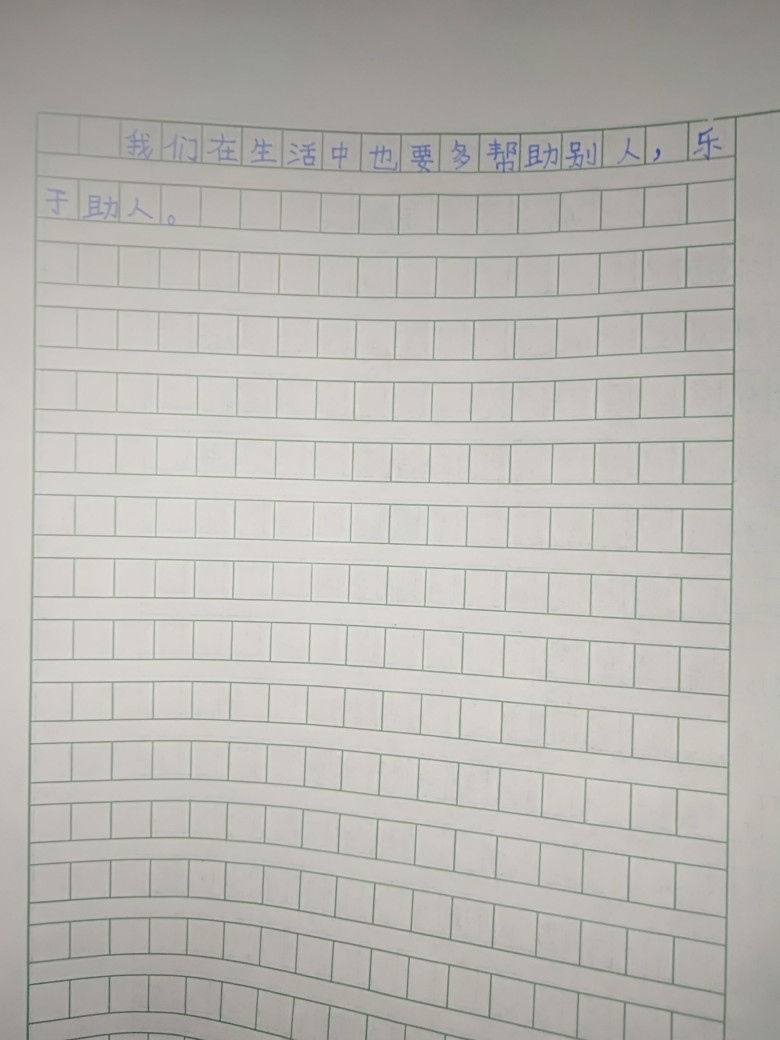 我们在生活中也要多帮助别人，乐
于助人。